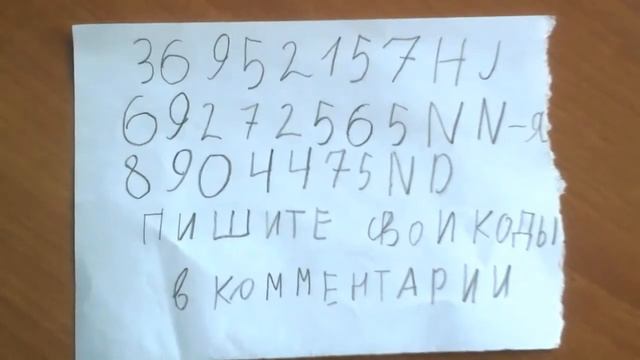 36952157HJ
69272565NN-я
8904475ND
ПИШИТЕ СВОИ КОДЫ
в КОММЕНТАРИИ